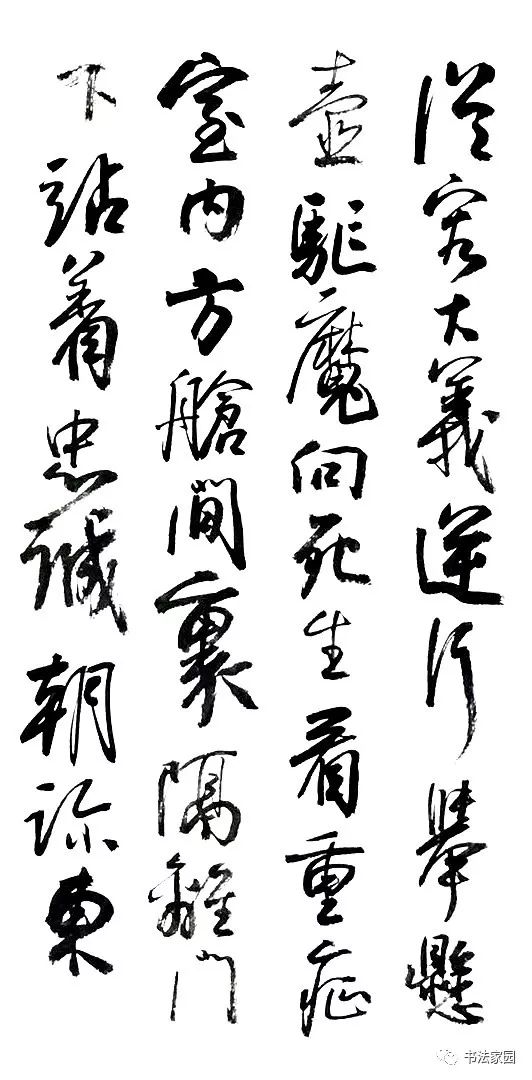 從容大義逆行舉懸
壺駈魔向死生看重症
室內方艙間裏隔離門
下站着忠誠朝診東
书法家园